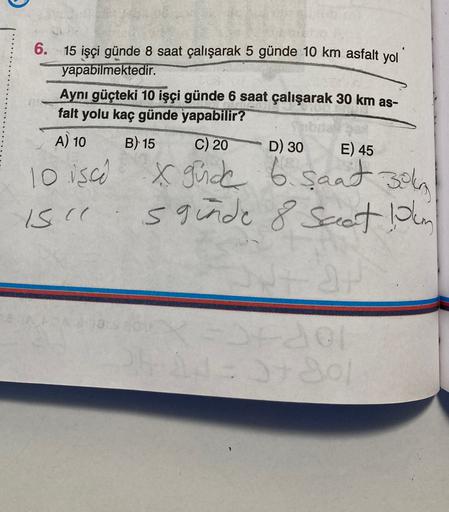 6. 15 işçi günde 8 saat çalışarak 5 günde 10 km asfalt yol
yapabilmektedir.
Aynı güçteki 10 işçi günde 6 saat çalışarak 30 km as-
falt yolu kaç günde yapabilir?
A) 10 B) 15 C) 20 D) 30 E) 45
10 işçi x günde 6 saat 30km
15 '' 5 günde 8 saat 10km